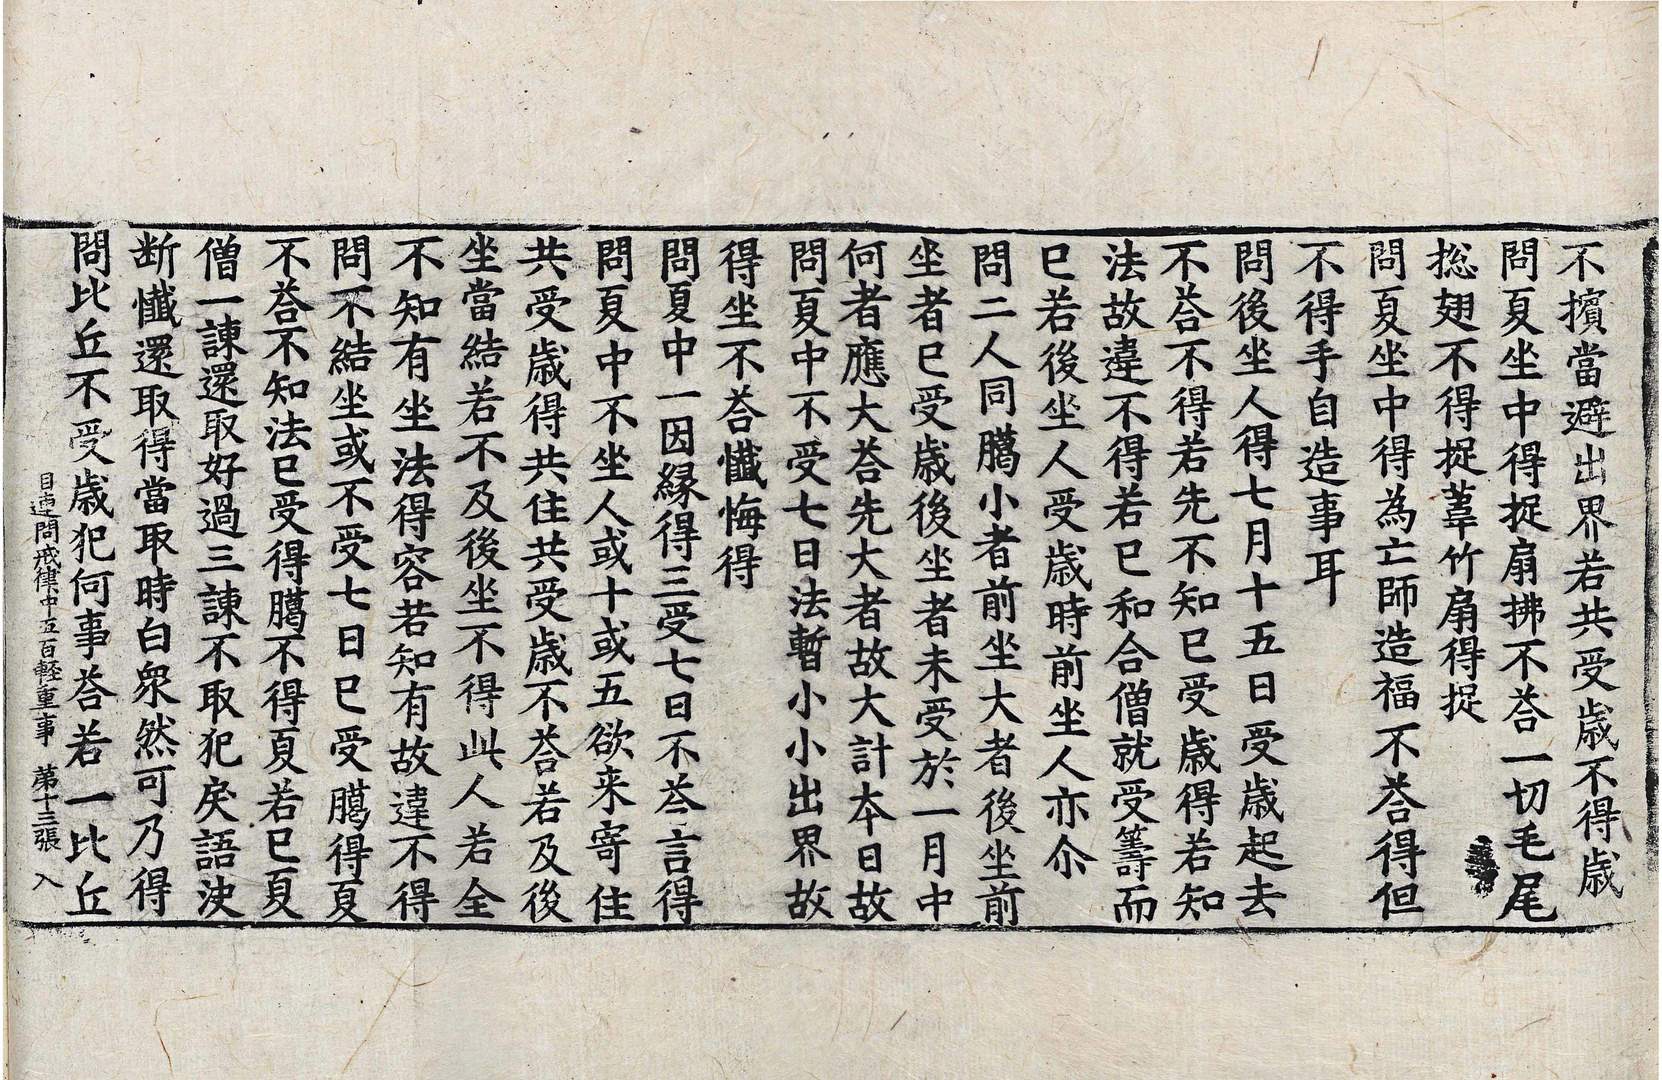 不擯當避出界若共受歳不得歳
問夏坐中得捉扇拂不荅一切毛尾
揔翅不得捉葦竹扇得捉
問夏坐中得為亡師造福不荅得但
不得手自造事耳
問後坐人得七月十五日受歳起去
不荅不得若先不知已受歳得若知
法故違不得若已和合僧就受籌而
已若後坐人受歳時前坐人亦尒
問二人同臈小者前坐大者後坐前
坐者已受歳後坐者未受於一月中
何者應大荅先大者故大計本日故
問夏中不受七日法暫小小出界故
得坐不荅懺悔得
問夏中一因緣得三受七日不荅言得
問夏中不坐人或十或五欲来寄住
共受歳得共住共受歳不荅若及後
坐當結若不及後坐不得此人若全
不知有坐法得容若知有故違不得
問不結坐或不受七日已受臈得夏
不荅不知法已受得臈不得夏若已夏
僧一諫還取好過三諫不取犯戾語決
断懺還取得當取時白衆然可乃得
問比丘不受歳犯何事荅若一比丘
目連問戒律中五百軽重事 第十三張 入